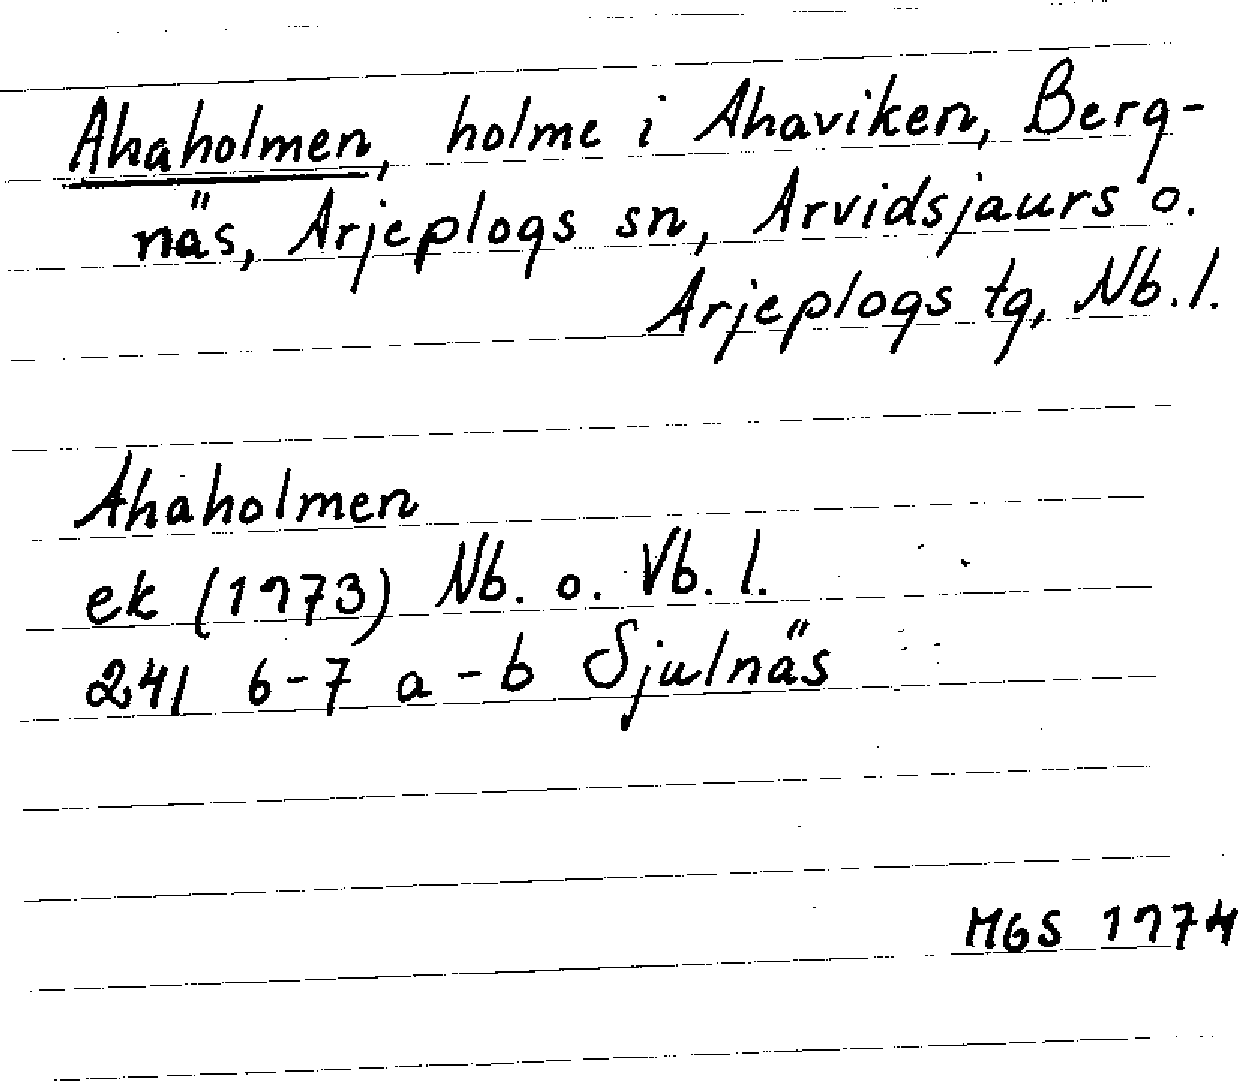 Ahaholmen, holme i Ahaviken, Berg-
näs, Arjeplogs sn, Arvidsjaurs o.
Arjeplogs tg, Nb. l.
Ahaholmen
ek (1973) Nb. o. Vb. l.
241 6-7 a-b Sjulnäs
MGS 1974